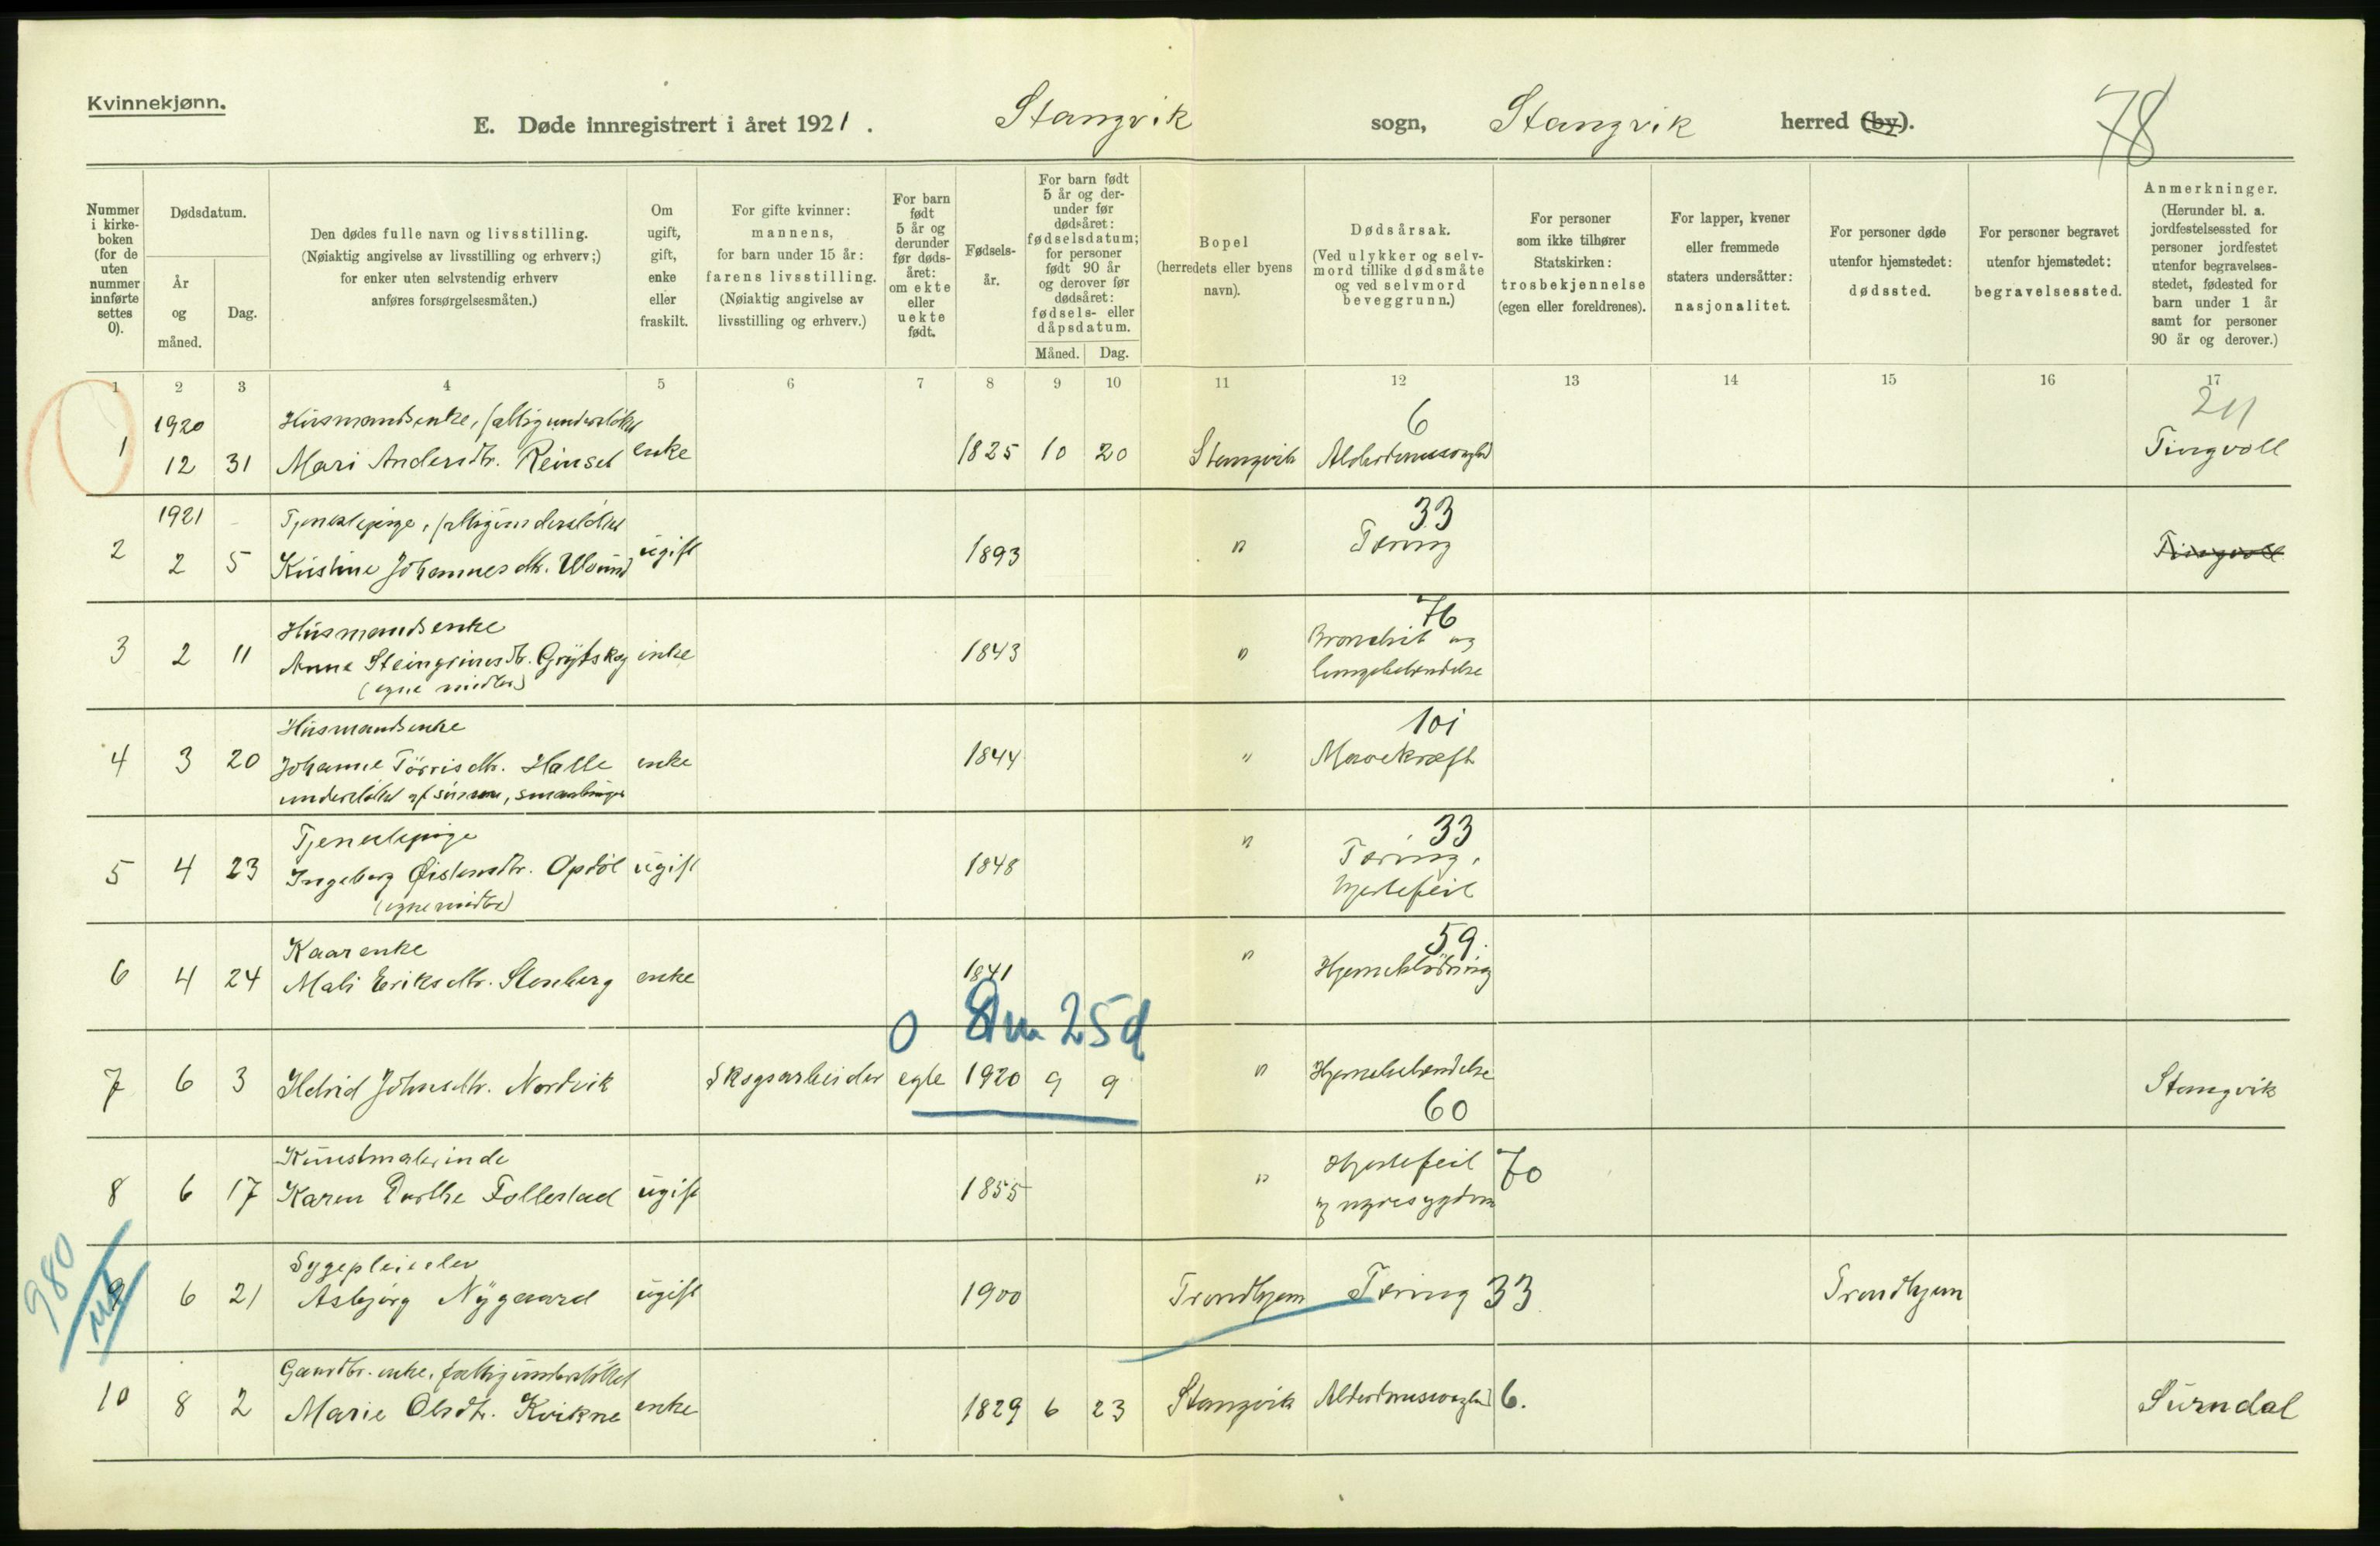 Kvinnekjønn.
E. Døde innregistrert i året 1921. Stangvik sogn, Stangvik herred (by).
78
Nummer i kirkeboken (for de uten nummer innførte settes 0).
Dødsdatum.
År og måned.
Dag.
Den dødes fulle navn og livsstilling.
(Nøiaktig angivelse av livsstilling og erhverv;)
for enker uten selvstendig erhverv
anføres forsørgelsesmåten.)
Om ugift, gift, enke eller fraskilt.
For gifte kvinner: mannens, for barn under 15 år: farens livsstilling. (Nøiaktig angivelse av livsstilling og erhverv.)
For barn født 5 år og derunder før dødsåret: om ekte eller uekte født.
Fødselsår.
For barn født 5 år og derunder før dødsåret: fødselsdatum; for personer født 90 år og derover før dødsåret: fødsels- eller dåpsdatum.
Måned. Dag.
Bopel (herredets eller byens navn).
Dødsårsak. (Ved ulykker og selvmord tillike dødsmåte og ved selvmord beveggrunn.)
For personer som ikke tilhører Statskirken: trosbekjennelse (egen eller foreldrenes).
For lapper, kvener eller fremmede staters undersåtter: nasjonalitet.
For personer døde utenfor hjemstedet: dødssted.
For personer begravet utenfor hjemstedet: begravelsessted.
Anmerkninger. (Herunder bl. a. jordfestelsessted for personer jordfestet utenfor begravelsesstedet, fødested for barn under 1 år samt for personer 90 år og derover.)
1 2 3 4 5 6 7 8 9 10 11 12 13 14 15 16 17
1920 Husmandsenke, fattigunderstøttet 6
1 12 31 Mari Andersdtr. Reinset enke 1825 10 20 Stangvik Alderdomssvaghed Tingvoll
1921 Tjenestepige, fattigunderstøttet 33
2 2 5 Kristine Johannesdtr. Ulvund ugift 1893 " Tæring Tingvoll
Husmandsenke 76
3 2 11 Anne Steingrimsdtr. Grytskog enke 1843 " Bronchit og
(egne midler) lungebetændelse
Husmandsenke 101
4 3 20 Johanne Törrisdtr. Halle enke 1844 " Mavekræft
understøttet af sønnen,
Tjenestepige 33
5 4 23 Ingeborg Øistensdtr. Opdöl ugift 1848 " Tæring,
(egne midler) hjertefeil
Kaarenke 59.
6 4 24 Mali Eriksdtr. Stenberg enke 1841 " Hjerneblödning
0 8m 25d
7 6 3 Hdrid Johnsdtr. Nordvik Skogsarbeider egte 1920 9 9 " Hjernebetændelse Stangvik
60
Kunstmalerinde
8 6 17 Karen Dorthe Follestad ugift 1855 " Hjertefeil 70
og nyresygdom
980
Sygepleieelev
9 6 21 Asbjørg Nygaard ugift 1900 Trondhjem Tæring 33 Trondhjem
Gaardbr. enke, fattigunderstöttet
10 8 2 Marie Olsdtr. Kvikne enke 1829 6 23 Stangvik Alderdomssvaghed 6. Surndal